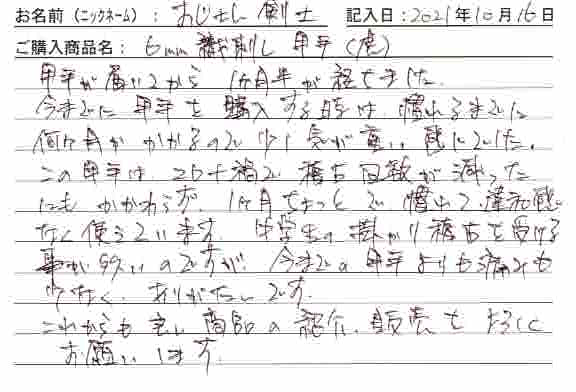 お名前(ニックネーム): おじさん剣士 記入日:2021年10月16日
ご購入商品名: 6mm 織刺し 甲手(虎)
甲手が届いてから 1ヶ月半が経ちました。
今までに 甲手を購入する時は、慣れるまでに
何ヶ月か かかるので 少し気が重い 感じでした。
この甲手は コロナ禍で 稽古回数が減った
にも かかわらず、1ヶ月ちょっとで 慣れて 違和感
なく 使えています。中学生の掛かり稽古を受ける
事が多いのですが、今までの甲手よりも痛みも
少なく、ありがたいです。
これからも 良い商品の紹介、販売を よろしく
お願いします。